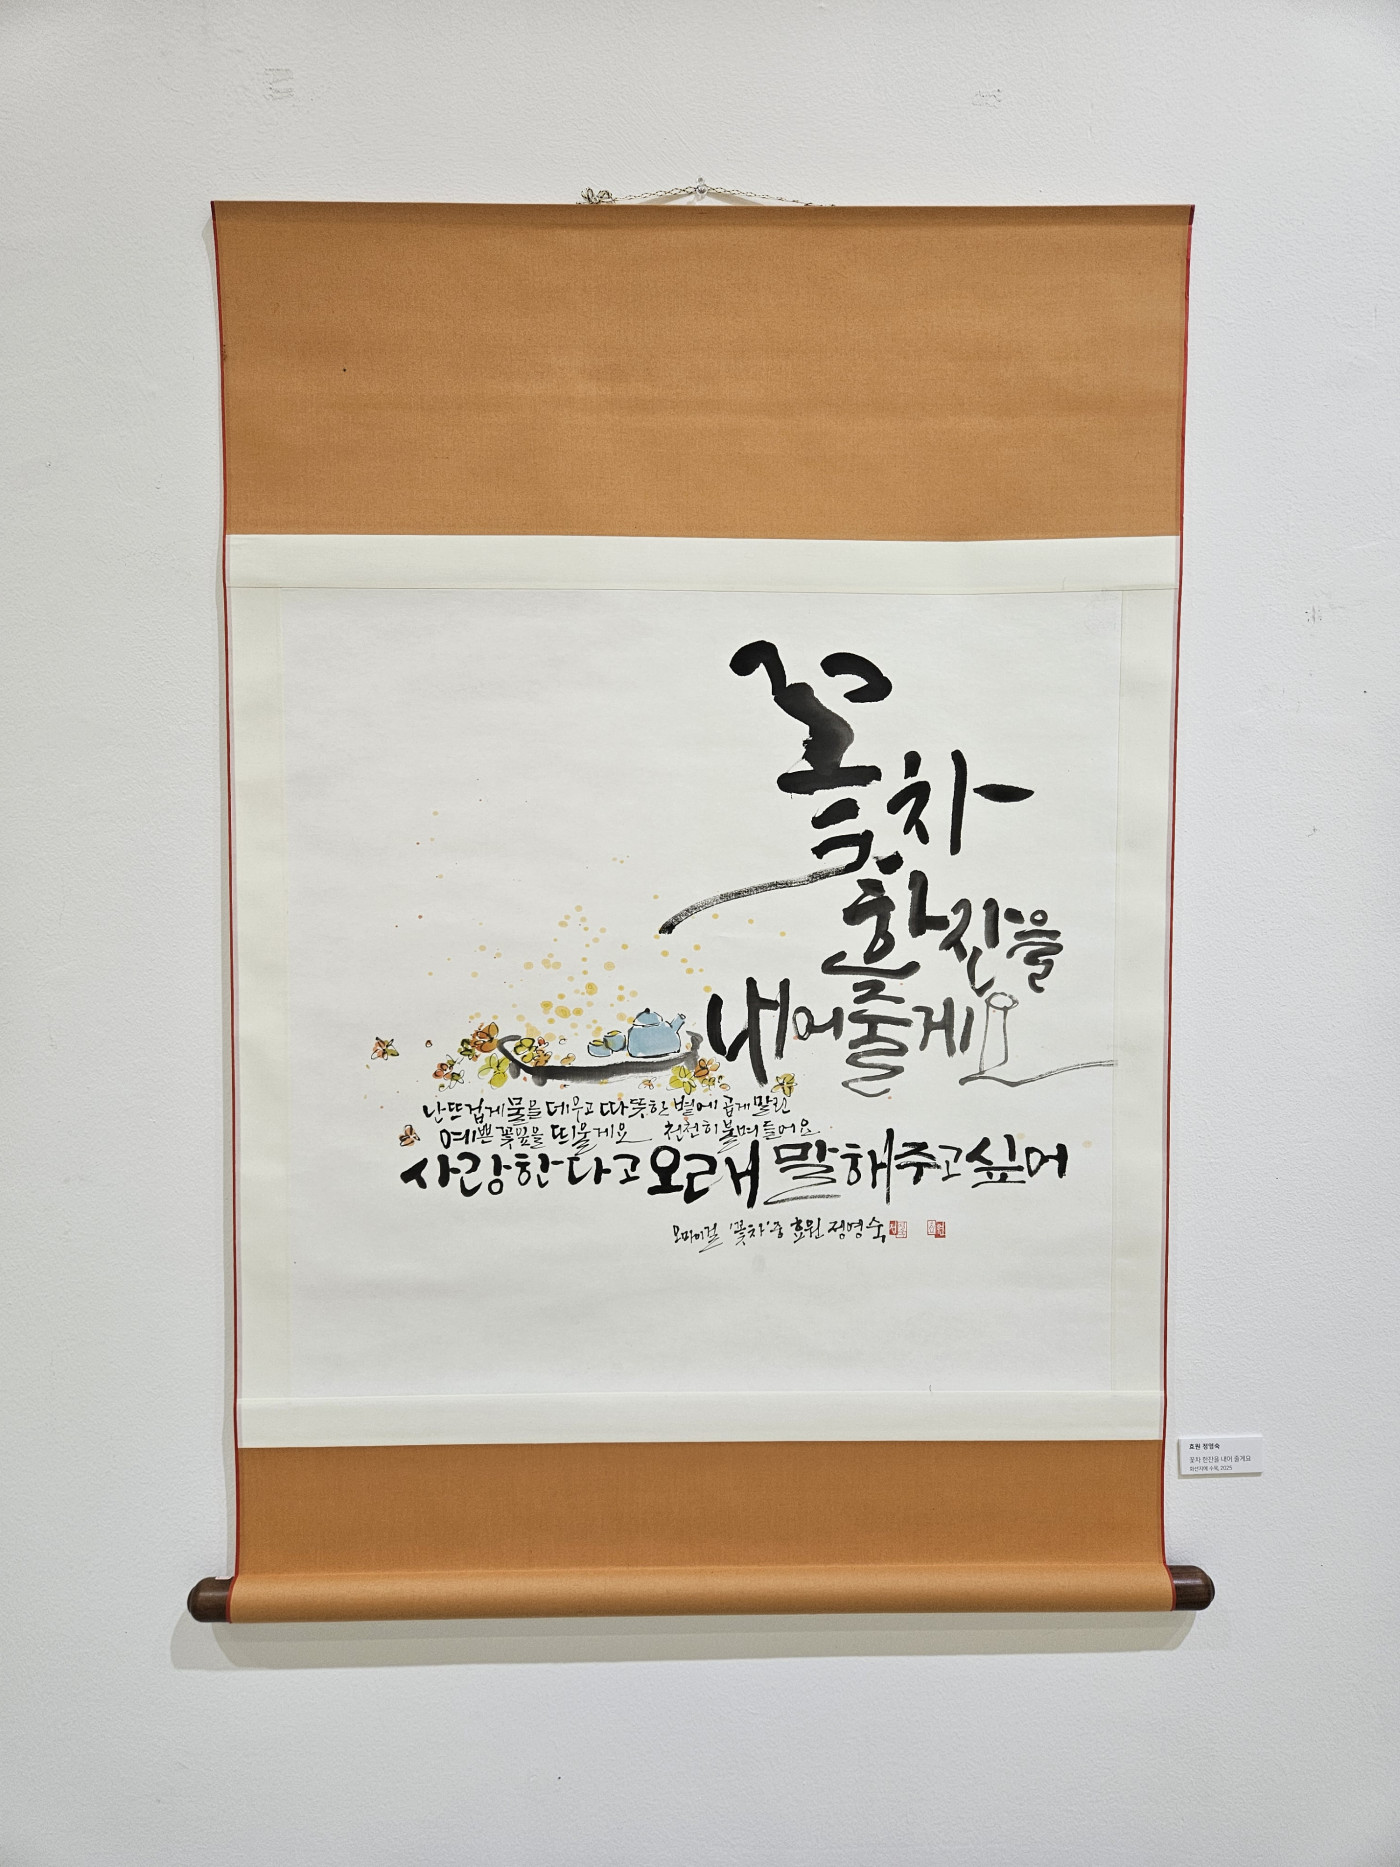 꽃차
한잔을
내어줄게요
난 뜨겁게 물을 데우고 따뜻한 볕에 곱게 말린
예쁜 꽃잎을 띄울게요 천천히 불며 들어요
사랑한다고 오래 말해주고 싶어
오마이걸 '꽃차' 중 효원 정영숙
효원 정영숙
꽃차 한잔을 내어 줄게요
화선지에 수묵, 2025